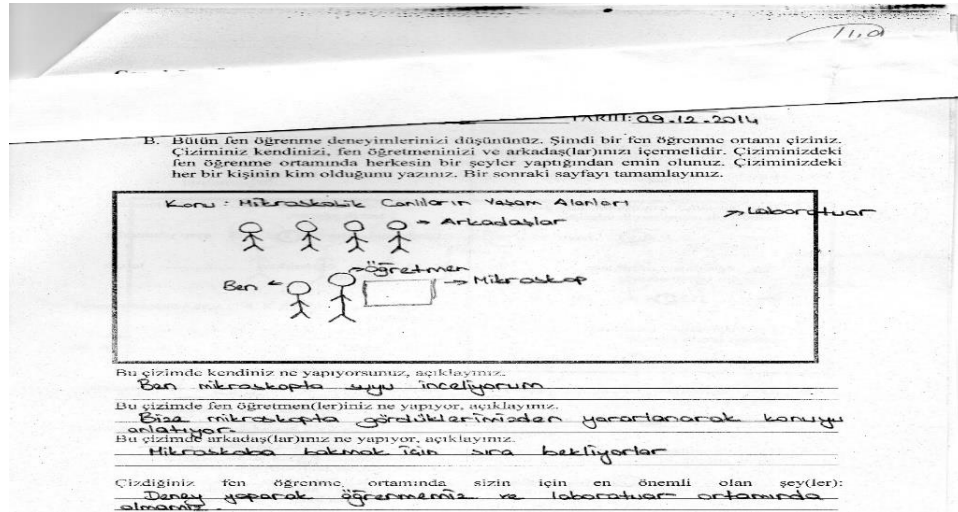 11.a
TARİH: 09.12.2014
B. Bütün fen öğrenme deneyimlerinizi düşününüz. Şimdi bir fen öğrenme ortamı çiziniz.
Çiziminiz kendinizi, fen öğretmeninizi ve arkadaş(lar)ınızı içermelidir. Çiziminizdeki
fen öğrenme ortamında herkesin bir şeyler yaptığından emin olunuz. Çiziminizdeki
her bir kişinin kim olduğunu yazınız. Bir sonraki sayfayı tamamlayınız.
Konu: Mikroskobik Canlıların Yaşam Alanları
Laboratuar
Arkadaşlar
Öğretmen
Ben
Mikroskop
Bu çizimde kendiniz ne yapıyorsunuz, açıklayınız.
Ben mikroskopta suyu inceliyorum
Bu çizimde fen öğretmen(ler)iniz ne yapıyor, açıklayınız.
Bize mikroskopta gördüklerimizden yararlanarak konuyu
anlatıyor.
Bu çizimde arkadaş(lar)ınız ne yapıyor, açıklayınız.
Mikroskoba bakmak için sıra bekliyorlar
Çizdiğiniz fen öğrenme ortamında sizin için en önemli olan şey(ler):
Deney yaparak öğrenmemiz ve laboratuar ortamında
olmamız.